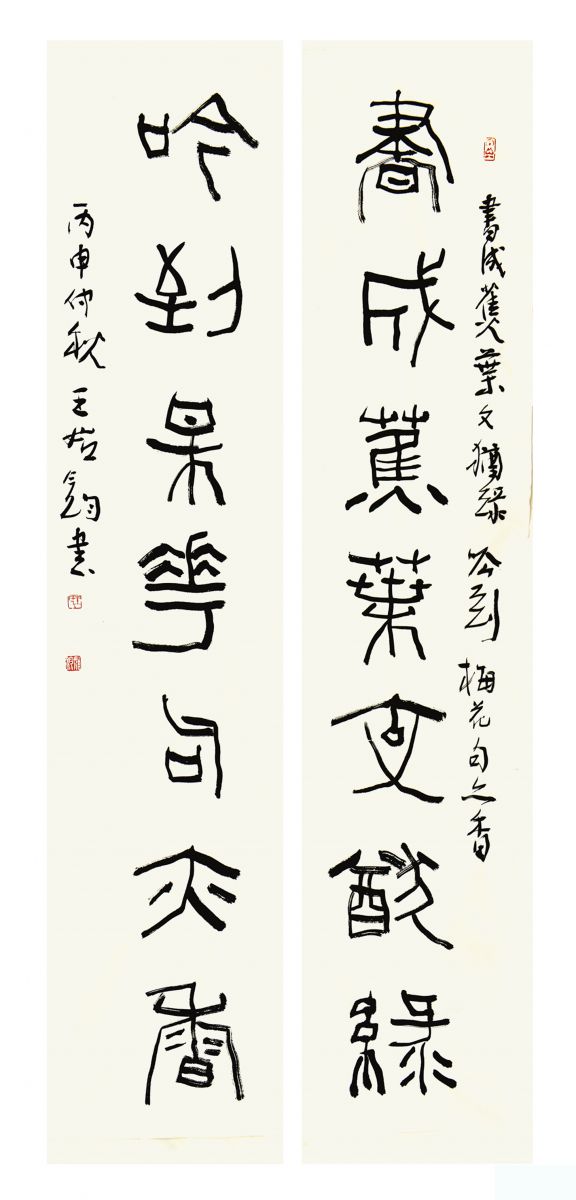 書成蕉葉文猶綠 吟到梅花句亦香
書成蕉葉文猶綠
吟到呆華句亦香
丙申仲秋 王
書